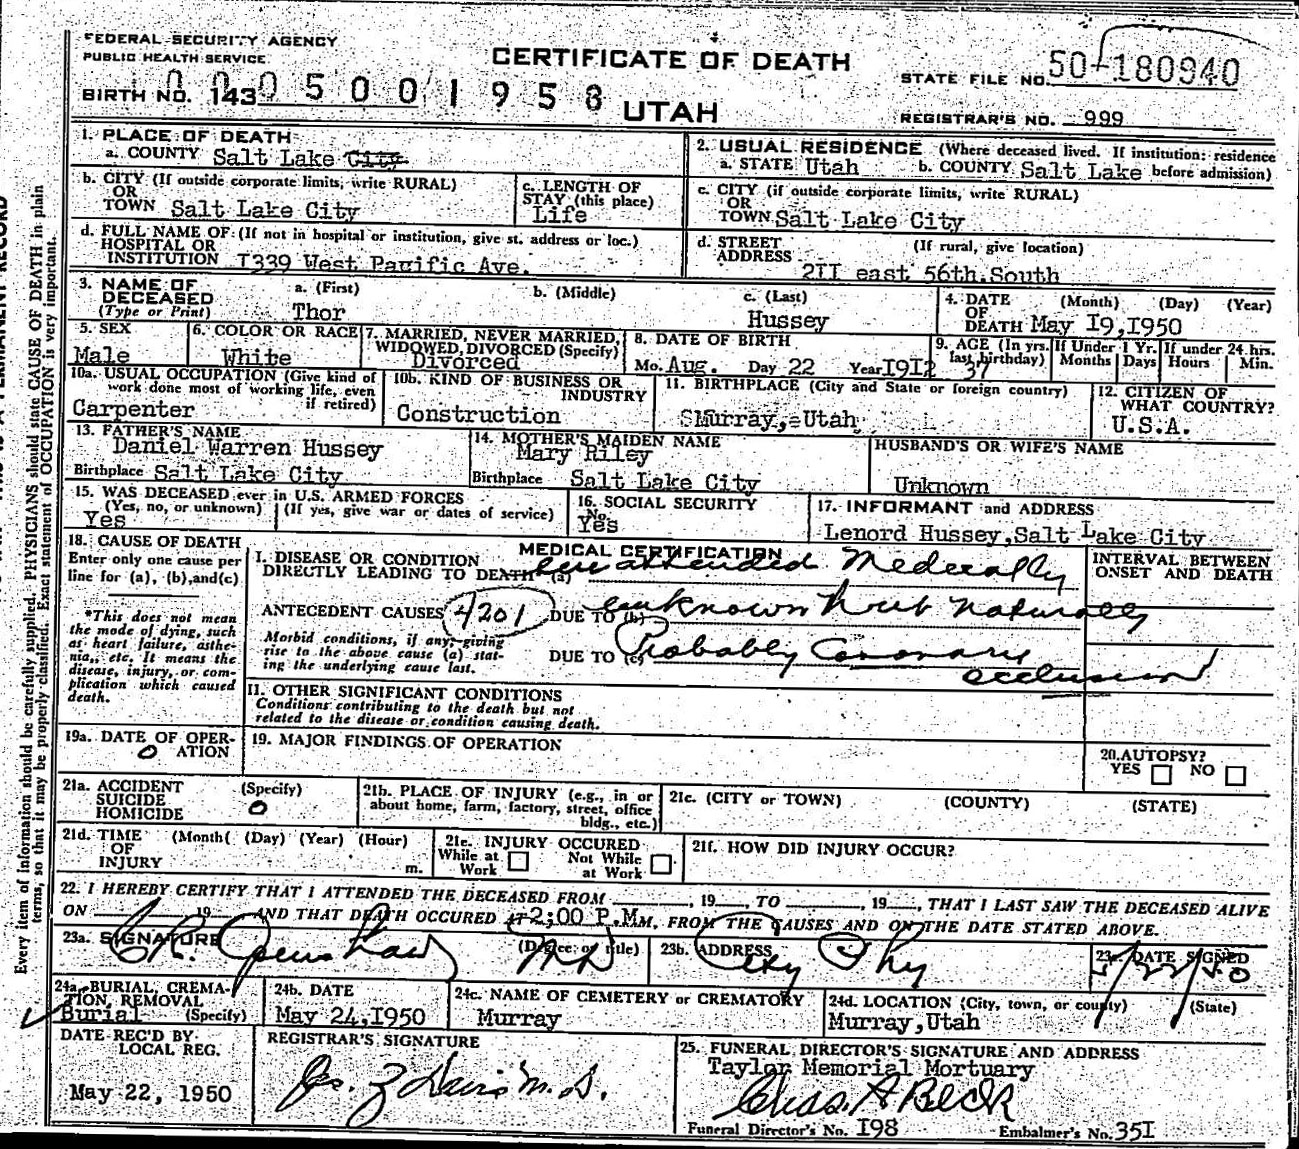 FEDERAL SECURITY AGENCY
PUBLIC HEALTH SERVICE
CERTIFICATE OF DEATH
STATE FILE NO. 50-180940
BIRTH NO. 143 0005001958
UTAH
REGISTRAR'S NO. 999
1. PLACE OF DEATH
a. COUNTY Salt Lake City
2. USUAL RESIDENCE (Where deceased lived. If institution: residence
a. STATE Utah b. COUNTY Salt Lake before admission)
b. CITY (If outside corporate limits, write RURAL)
OR
TOWN Salt Lake City
c. LENGTH OF
STAY (this place)
Life
c. CITY (if outside corporate limits, write RURAL)
OR
TOWN Salt Lake City
d. FULL NAME OF (If not in hospital or institution, give st. address or loc.)
HOSPITAL OR
INSTITUTION I339 West Pacific Ave.
d. STREET (If rural, give location)
ADDRESS
2II east 56th.South
3. NAME OF
DECEASED
(Type or Print)
a. (First)
Thor
b. (Middle)
c. (Last)
Hussey
4. DATE (Month) (Day) (Year)
OF
DEATH May I9,I950
5. SEX
Male
6. COLOR OR RACE
White
7. MARRIED, NEVER MARRIED,
WIDOWED, DIVORCED (Specify)
Divorced
8. DATE OF BIRTH
Mo. Aug. Day 22 Year I9I2
9. AGE (In yrs.
last birthday)
37
If Under 1 Yr.
Months Days
If under 24 hrs.
Hours Min.
10a. USUAL OCCUPATION (Give kind of
work done most of working life, even
if retired)
Carpenter
10b. KIND OF BUSINESS OR
INDUSTRY
Construction
11. BIRTHPLACE (City and State or foreign country)
Murray, Utah
12. CITIZEN OF
WHAT COUNTRY?
U.S.A.
13. FATHER'S NAME
Daniel Warren Hussey
Birthplace Salt Lake City
14. MOTHER'S MAIDEN NAME
Mary Riley
Birthplace Salt Lake City
HUSBAND'S OR WIFE'S NAME
Unknown
15. WAS DECEASED ever in U.S. ARMED FORCES
(Yes, no, or unknown) (If yes, give war or dates of service)
Yes
16. SOCIAL SECURITY
No.
Yes
17. INFORMANT and ADDRESS
Lenord Hussey,Salt Lake City
18. CAUSE OF DEATH
Enter only one cause per
line for (a), (b),and(c)
*This does not mean
the mode of dying, such
as heart failure, asthe-
nia, etc. It means the
disease, injury, or com-
plication which caused
death.
MEDICAL CERTIFICATION
I. DISEASE OR CONDITION
DIRECTLY LEADING TO DEATH (a) unattended Medecally
ANTECEDENT CAUSES 4201 DUE TO (b) unknown but naturally
Morbid conditions, if any, giving
rise to the above cause (a) stat-
ing the underlying cause last.
DUE TO (c) Probably Coronary
occlusion
INTERVAL BETWEEN
ONSET AND DEATH
II. OTHER SIGNIFICANT CONDITIONS
Conditions contributing to the death but not
related to the disease or condition causing death.
19a. DATE OF OPER-
ATION
0
19. MAJOR FINDINGS OF OPERATION
20. AUTOPSY?
YES NO
21a. ACCIDENT (Specify)
SUICIDE
HOMICIDE 0
21b. PLACE OF INJURY (e.g., in or
about home, farm, factory, street, office
bldg., etc.)
21c. (CITY or TOWN) (COUNTY) (STATE)
21d. TIME (Month( (Day) (Year) (Hour)
OF
INJURY m.
21e. INJURY OCCURED
While at Work Not While at Work
21f. HOW DID INJURY OCCUR?
22. I HEREBY CERTIFY THAT I ATTENDED THE DECEASED FROM , 19 , TO , 19 , THAT I LAST SAW THE DECEASED ALIVE
ON 19 AND THAT DEATH OCCURED AT 2;00 P.M M, FROM THE CAUSES AND ON THE DATE STATED ABOVE.
23a. SIGNATURE (Degree or title)
C.R. Openshaw MD
23b. ADDRESS
City Phy
23c. DATE SIGNED
5/22/50
24a. BURIAL, CREMA-
TION, REMOVAL
Burial (Specify)
24b. DATE
May 24,I950
24c. NAME OF CEMETERY or CREMATORY
Murray
24d. LOCATION (City, town, or county) (State)
Murray,Utah
DATE REC'D BY
LOCAL REG.
May 22, 1950
REGISTRAR'S SIGNATURE
Davis M.D.
25. FUNERAL DIRECTOR'S SIGNATURE AND ADDRESS
Taylor Memorial Mortuary
Chas. A Beck
Funeral Director's No. I98 Embalmer's No. 35I
Every item of information should be carefully supplied. PHYSICIANS should state CAUSE OF DEATH in plain
terms, so that it may be properly classified. Exact statement of OCCUPATION is very important.